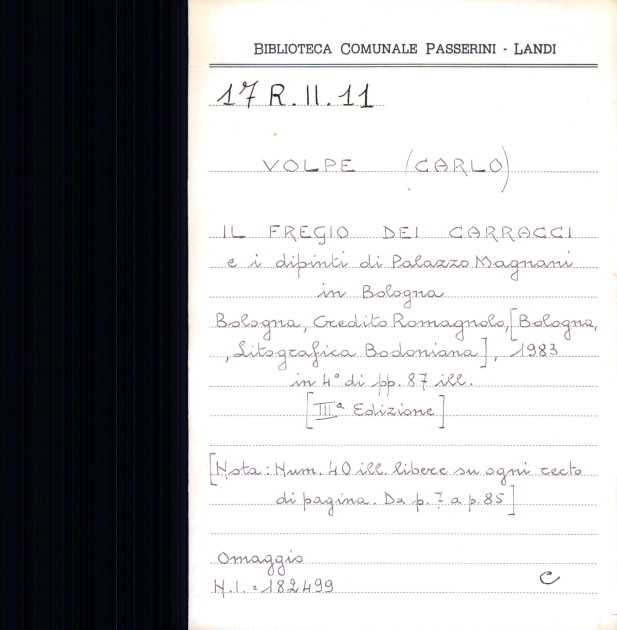 BIBLIOTECA COMUNALE PASSERINI - LANDI
17 R. II. 11
VOLPE (CARLO)
IL FREGIO DEI CARRACCI
e i dipinti di Palazzo Magnani
in Bologna
Bologna, Credito Romagnolo, [Bologna,
, Litografica Bodoniana], 1983
in 4° di pp. 87 ill.
[IIIª Edizione]
[Nota: Num. 40 ill. libere su ogni recto
di pagina. Da p. 7 a p. 85]
Omaggio
N.I. = 182499
C